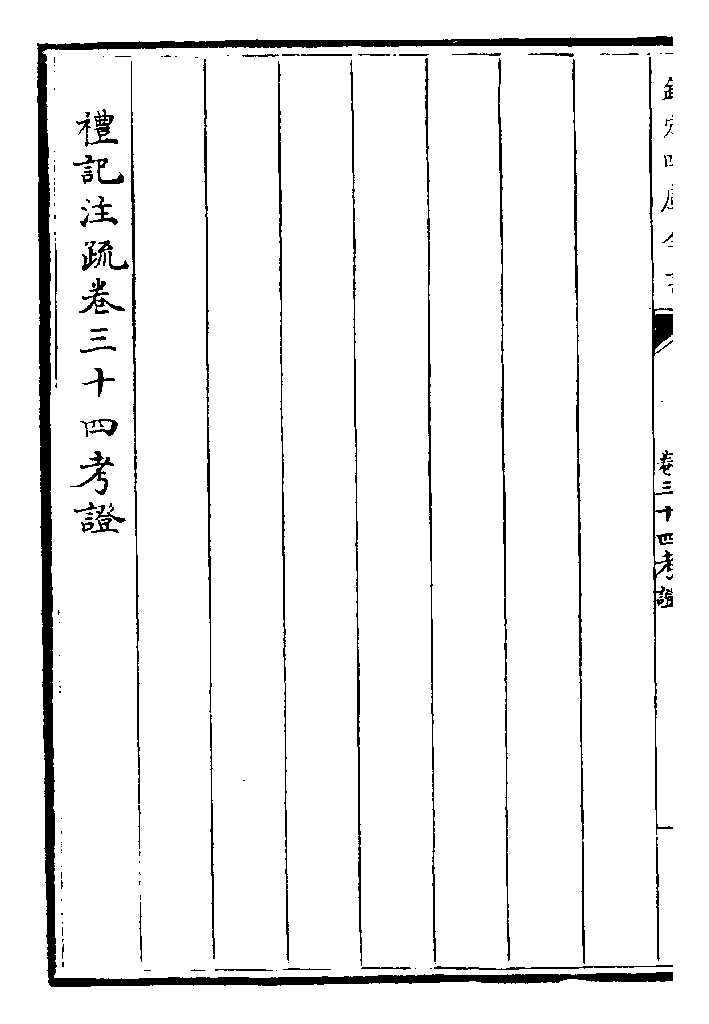 欽定四庫全書
卷三十四考證
禮記注疏卷三十四考證